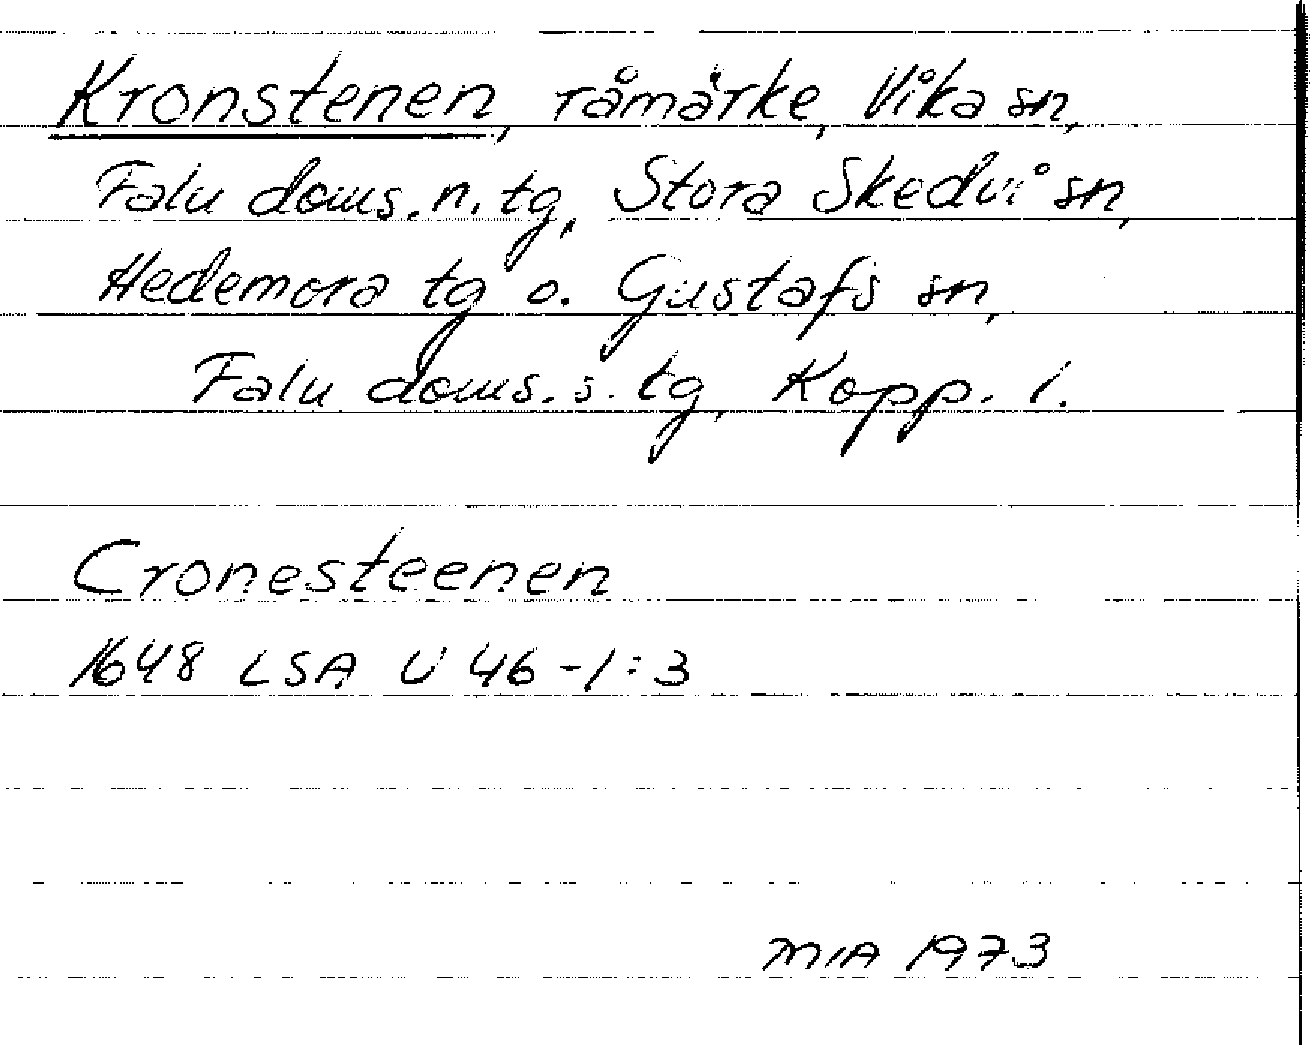 Kronstenen, råmärke, Vika sn,
Falu doms. n. tg, Stora Skedvi sn,
Hedemora tg o. Gustafs sn,
Falu doms. s. tg, Kopp. l.
Cronesteenen
1648 LSA U 46-1:3
MIA 1973